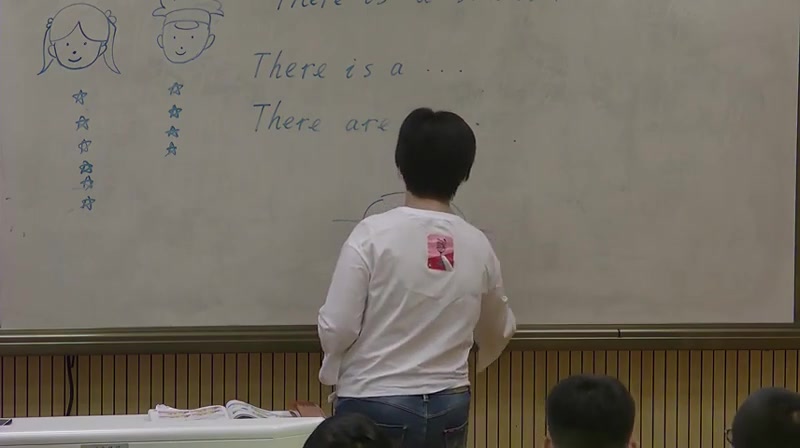 There is a
There is a ...
There are